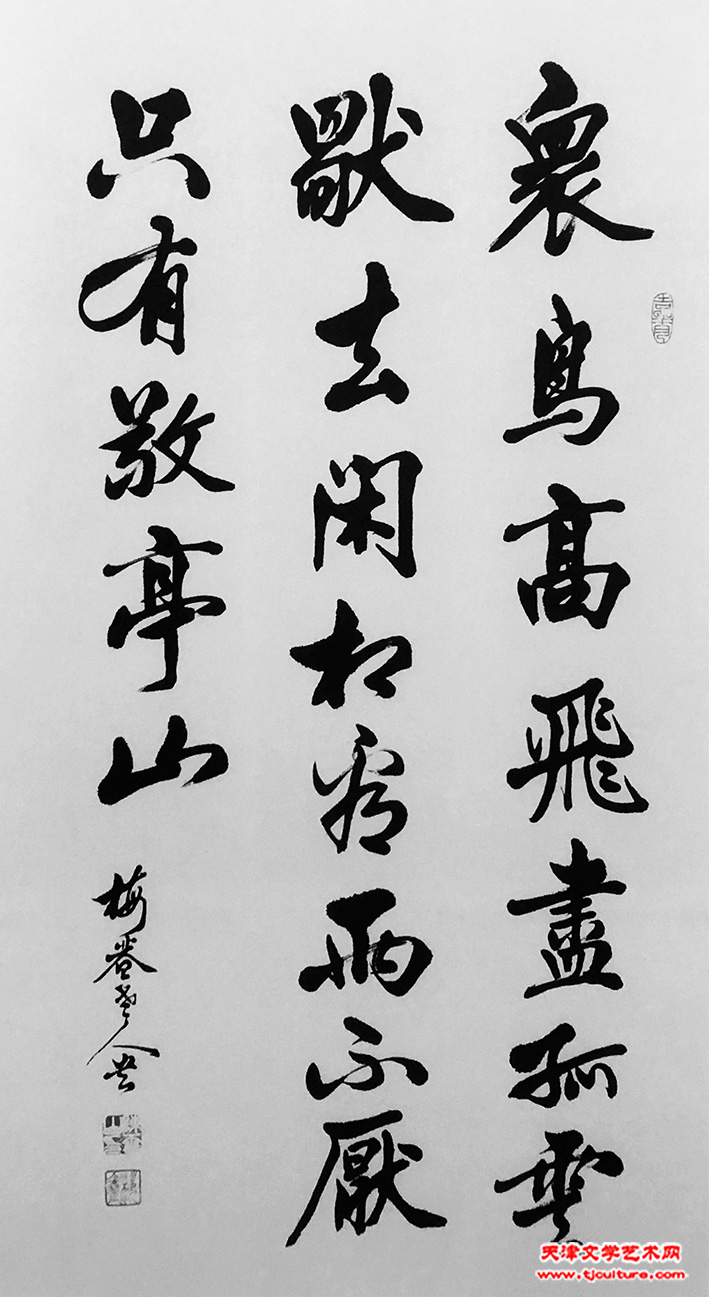 衆鳥高飛盡孤雲
獸去閑相看兩不厭
只有敬亭山
梅
天津文学艺术网
www.tjculture.com